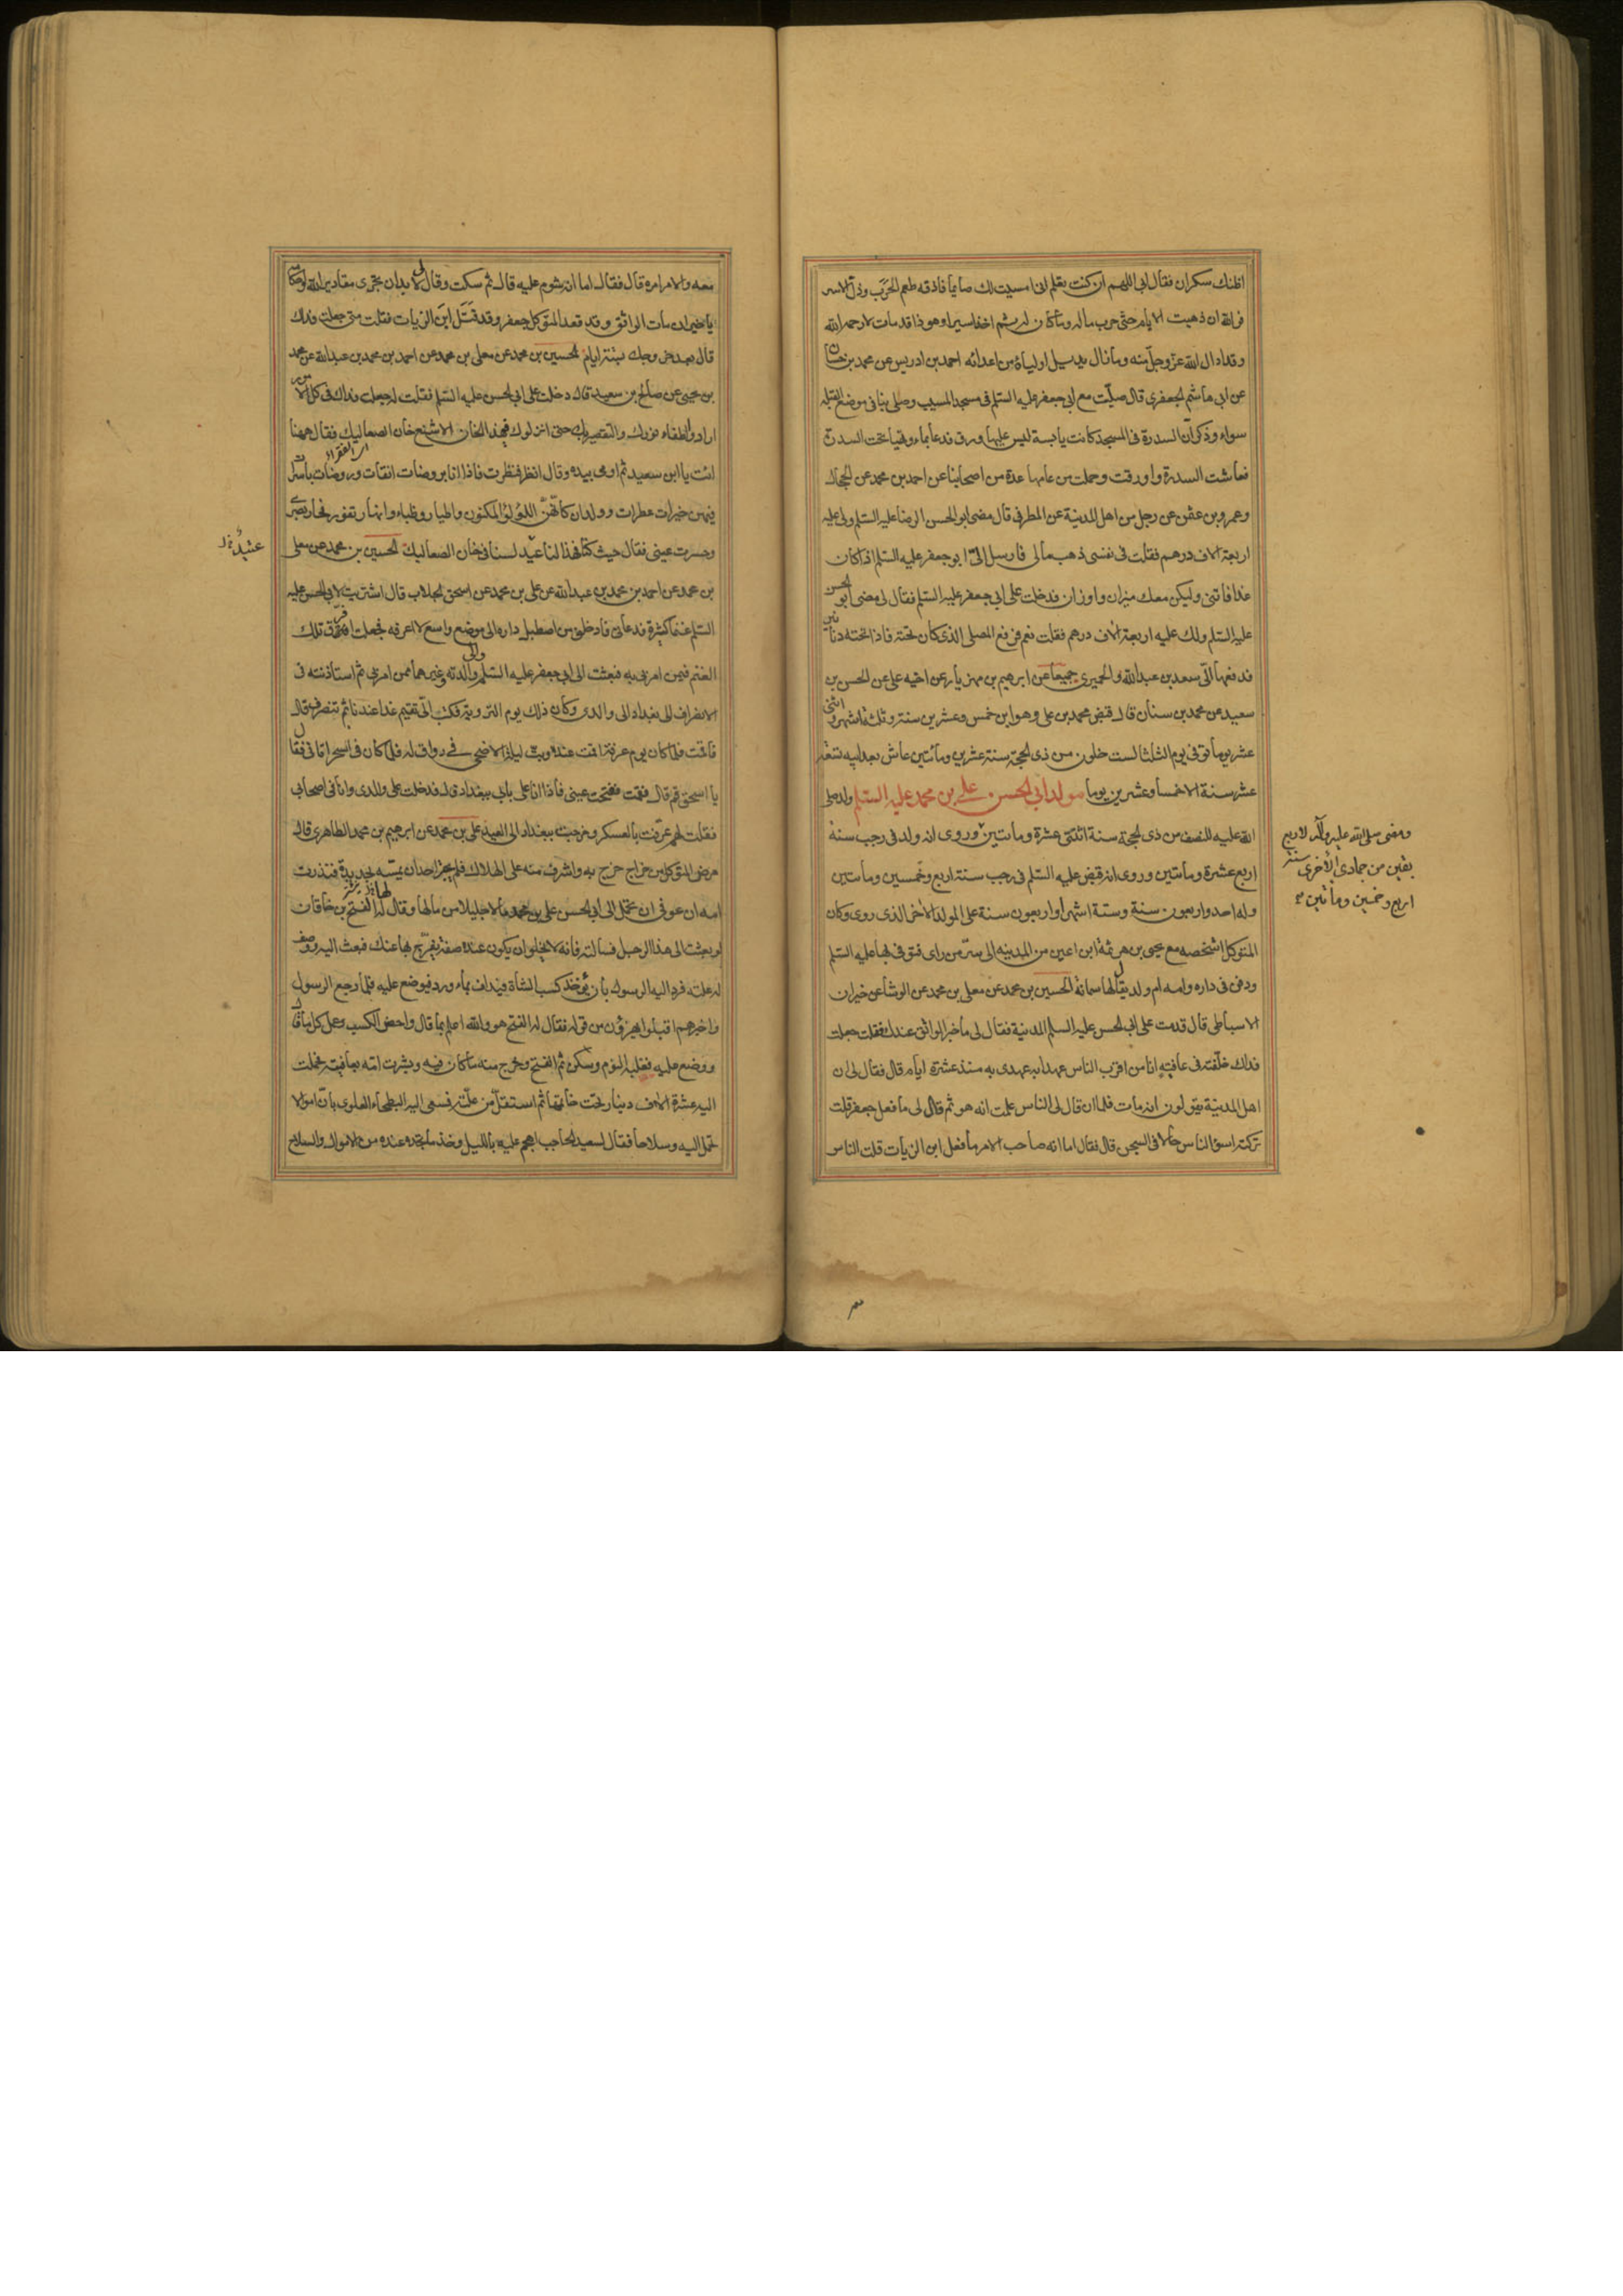 اظنك سكران فقال ابى اللهم ان كنت تعلم انى امسيت لك صايما فاذقه طعم الحرب وذل الاسر
فوالله ان ذهبت الايام حتى حرب ماله وما كان له ثم اخذ اسيرا وهو ذا قد مات لا رحمه الله
وقد ادال الله عز وجل منه وما زال يديل اولياءه من اعدائه احمد بن ادريس عن محمد بن حسان
عن ابى هاشم الجعفرى قال صليت مع ابى جعفر عليه السلم فى مسجد المسيب وصلى بنا فى موضع القبلة
سواء وذكر ان السدرة التى فى المسجد كانت يابسة ليس عليها ورق فدعا بماء وتهيأ تحت السدرة
فعاشت السدرة واورقت وحملت من عامها عدة من اصحابنا عن احمد بن محمد عن الحجال
وعمرو بن عثمن عن رجل من اهل المدينة عن المطرفى قال مضى ابو الحسن الرضا عليه السلم ولى عليه
اربعة الاف درهم فقلت فى نفسى ذهب مالى فارسل الىّ ابو جعفر عليه السلم اذا كان
غدا فاتنى وليكن معك ميزان واوزان فدخلت على ابى جعفر عليه السلم فقال لى مضى ابو الحسن
عليه السلم ولك عليه اربعة الاف درهم فقلت نعم فرفع المصلى الذى كان تحته فاذا تحته دنانير
فدفعها الىّ سعد بن عبد الله والحميرى جميعا عن ابرهيم بن مهزيار عن اخيه على عن الحسين بن
سعيد عن محمد بن سنان قال قبض محمد بن على وهو ابن خمس وعشرين سنة وثلثة اشهر واثنى
عشر يوما توفى يوم الثلثا لست خلون من ذى الحجة سنة عشرين ومأتين عاش بعد ابيه تسعة
عشر سنة الا خمسا وعشرين يوما مولد ابى الحسن على بن محمد عليه السلم ولد صلى
الله عليه للنصف من ذى الحجة سنة اثنتى عشرة ومأتين وروى انه ولد فى رجب سنة
اربع عشرة ومأتين وروى انه قبض عليه السلم فى رجب سنة اربع وخمسين ومأتين
وله احد واربعون سنة وستة اشهر او اربعون سنة على المولد الاخر الذى روى وكان
المتوكل اشخصه مع يحيى بن هرثمة ابن اعين من المدينه الى سرّ من راى فتوفى بها عليه السلم
ودفن فى داره وامه ام ولد يقال لها سمانة الحسين بن محمد عن معلى بن محمد عن الوشا عن خيران
الاسباطى قال قدمت على ابى الحسن عليه السلم المدينة فقال لى ما خبر الواثق عندك فقلت جعلت
فداك خلّفته فى عافية انا من اقرب الناس عهدا به عهدى به منذ عشرة ايام قال فقال لى ان
اهل المدينة يقولون انه مات فلما ان قال لى الناس علمت انه هو ثم قال لى ما فعل جعفر قلت
تركته اسوء الناس حالا فى السجن قال فقال اما انه صاحب الامر ما فعل ابن الزيات قلت الناس
ومضى صلى الله عليه وآله لاربع
بقين من جمادى الأخرى سنة
اربع وخمسين ومأتين
معه والامر امره قال فقال اما انه شوم عليه قال ثم سكت وقال لى لا بد ان تجرى مقادير الله واحكامه
يا خيران مات الواثق وقد قعد المتوكل جعفر وقد قتل ابن الزيات فقلت متى جعلت فداك
قال بعد خروجك بستة ايام الحسين بن محمد عن معلى بن محمد عن احمد بن محمد بن عبد الله عن محمد
بن يحيى عن صالح بن سعيد قال دخلت على ابى الحسن عليه السلم فقلت له جعلت فداك فى كل الامور
ارادوا اطفاء نورك والتقصير بك حتى انزلوك فى هذا الخان الاشنع خان الصعاليك فقال ههنا
انت يا ابن سعيد ثم اومى بيده وقال انظر فنظرت فاذا انا بروضات انقات وروضات باسرات
فيهن خيرات عطرات وولدان كأنهن اللؤلؤ المكنون واطيار وظباء وانهار تفور فحار بصرى
وحسرت عينى فقال حيث كنا فهذا لنا عتيد لسنا فى خان الصعاليك الحسين بن محمد عن معلى
بن محمد عن احمد بن محمد بن عبد الله عن على بن محمد عن اسحق الجلاب قال اشتريت لابى الحسن عليه
السلم غنما كثيرة فدعانى فادخلنى من اصطبل داره الى موضع واسع لا اعرفه فجعلت افرق تلك
الغنم فيمن امرنى به فبعثت الى ابى جعفر عليه السلم والى والدته وغيرهما ممن امرنى ثم استاذنته فى
الانصراف الى بغداد الى والدى وكان ذلك يوم التروية فكتب الىّ تقيم غدا عندنا ثم تنصرف قال
فاقمت فلما كان يوم عرفة اقمت عنده وبت ليلة الاضحى فى رواق له فلما كان فى السحر اتانى فقال
يا اسحق قم قال فقمت ففتحت عينى فاذا انا على بابى ببغداد قال فدخلت على والدى وانا فى اصحابى
فقلت لهم عرّفت بالعسكر وخرجت ببغداد الى العيد على بن محمد عن ابرهيم بن محمد الطاهرى قال
مرض المتوكل من خراج خرج به واشرف منه على الهلاك فلم يجسر احد ان يمسّه بحديدة فنذرت
امه ان عوفى ان تحمل الى ابى الحسن على بن محمد مالا جليلا من مالها وقال له الفتح بن خاقان
لو بعثت الى هذا الرجل فسالته فانه لا يخلو ان يكون عنده صفة يفرّج بها عنك فبعث اليه ووصف
له علته فرد اليه الرسول بان يؤخذ كسب الشاة فيداف بماء ورد فيوضع عليه فلما رجع الرسول
واخبرهم اقبلوا يهزؤن من قوله فقال له الفتح هو والله اعلم بما قال واحضر الكسب وعمل كل ما قال
ووضع عليه فغلبه النوم وسكن ثم انفتح وخرج منه ما كان فيه وبشرت امه بعافيته فحملت
اليه عشرة الاف دينار تحت خاتمها ثم استقلّ من علّته فسعى اليه البطحاء العلوى بان اموالا
تحمل اليه وسلاحا فقال لسعيد الحاجب اهجم عليه بالليل وخذ ما تجده عنده من الاموال والسلاح